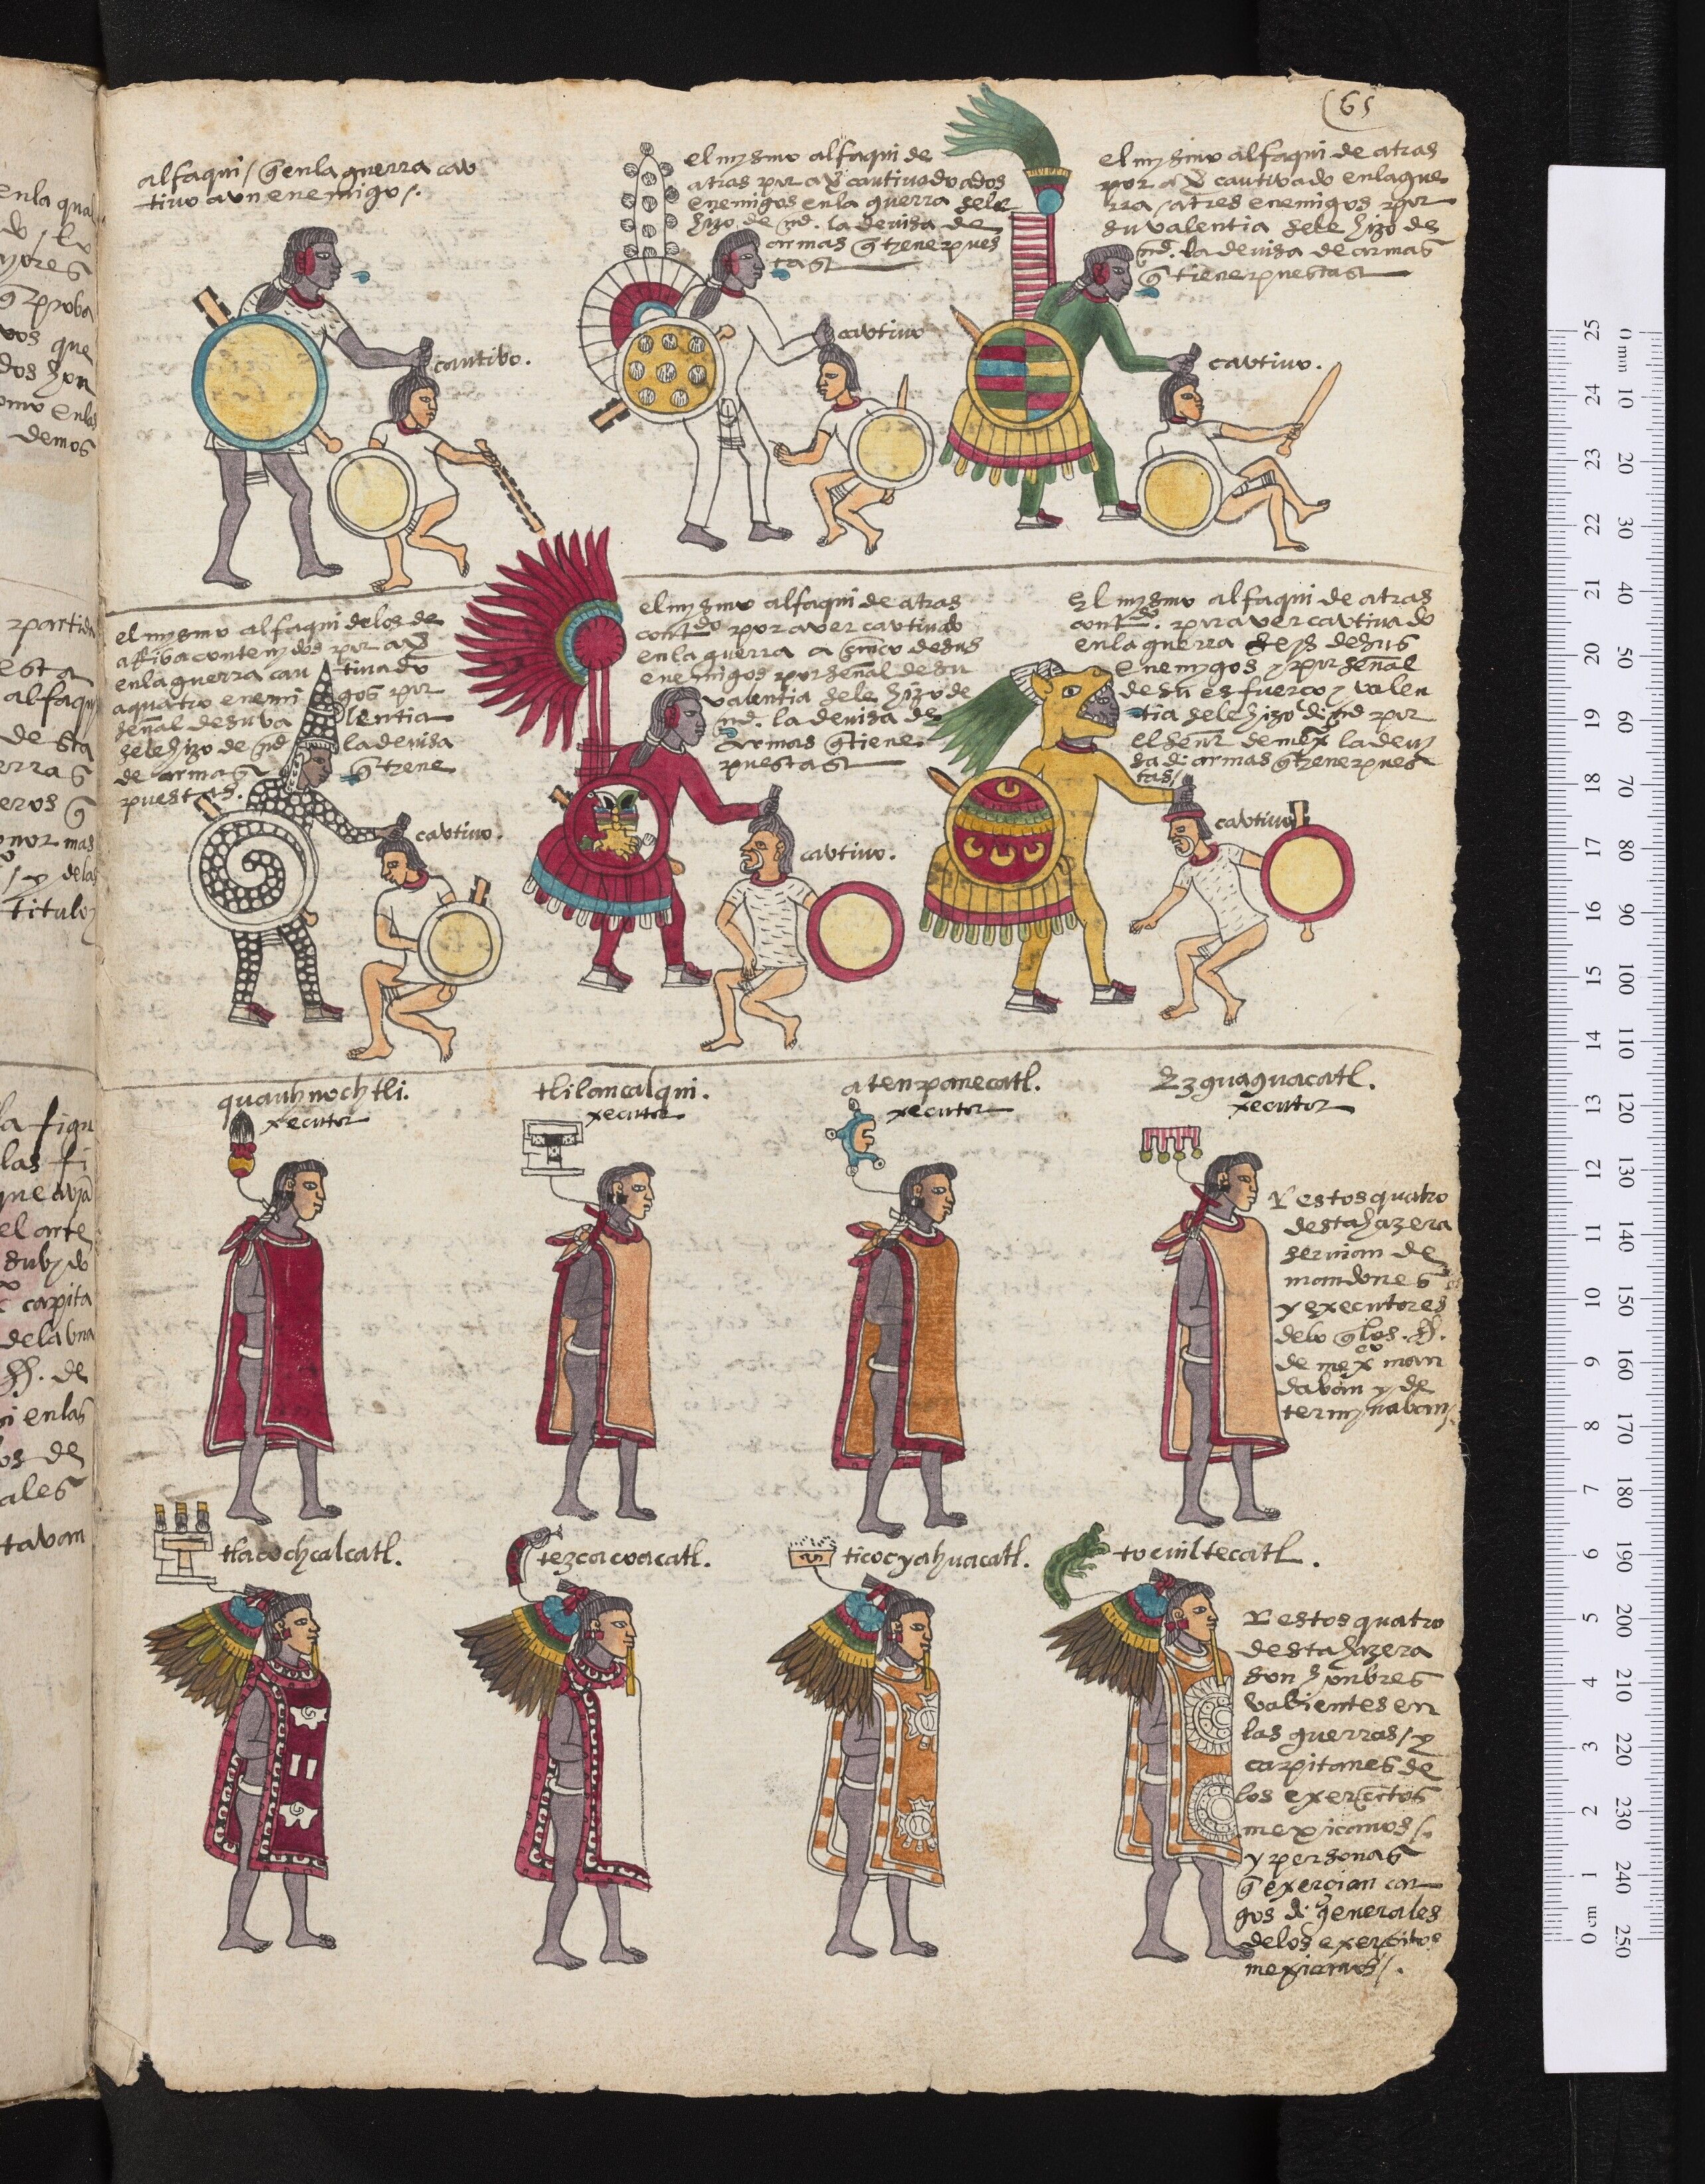 65
alfaqui / q̃ en la guerra cau
tiuo a un enemigo /.
cautibo.
el mysmo alfaqui de
atras por aṽ cautiuado a dos
enemigos en la guerra sele
hizo de md. la deuisa de
armas q̃ tiene pues
tas
cautiuo
el mysmo alfaqui de atras
por aṽ cautiuado en la gue
rra / a tres enemigos por
su valentia sele hizo de
md. la deuisa de armas
q̃ tiene puestas
cautiuo.
el mysmo alfaqui de los de
arriba contenydos por aṽ
en la guerra cau tiuado
a quatro enemi gos por
señal de su va lentia
sele hizo de md la deuisa
de armas q̃ tiene
puestas.
cautiuo.
el mysmo alfaqui de atras
contdo por aver cautiuado
en la guerra a cinco de sus
enemigos por señal de su
valentia sele hizo de
md. la deuisa de
armas q̃ tiene
puestas
cautiuo.
El mysmo alfaqui de atras
contdo. por aver cautiuado
en la guerra seys de sus
enemygos y por señal
de su esfuerço y valen
tia sele hizo de md por
el señr de mexco la deuy
sa de armas q̃ tiene pues
tas /
cautiuo
quauhnochtli.
xecutor
tlilancalqui.
xecutor
atenpanecatl.
xecutor
Ezguaguacatl.
xecutor
Y estos quatro
desta hazera
seruian de
mandones
y executores
de lo q̃ los .ss.
de mexco man
daban y de
termynaban /
tlacochcalcatl.
tezcacoacatl.
ticocyahuacatl.
tocuiltecatl.
Y estos quatro
desta hazera
son honbres
valientes en
las guerras / y
capitanes de
los exercitos
mexicanos /.
y personas
q̃ exercian car
gos de generales
de los exercitos
mexicanos /.
enla qua
mores
q̃ proba
vos que
dos hon
omo enlas
demos
partida
esta
alfaqui
de sta
erras
eros q̃
onor mas
/ y delas
titulo
la figu
las fi
que avia
el arte
subido
capita
de la una
ss. de
si en las
los de
ales
tavan
25 24 23 22 21 20 19 18 17 16 15 14 13 12 11 10 9 8 7 6 5 4 3 2 1 0 cm
0 mm 10 20 30 40 50 60 70 80 90 100 110 120 130 140 150 160 170 180 190 200 210 220 230 240 250